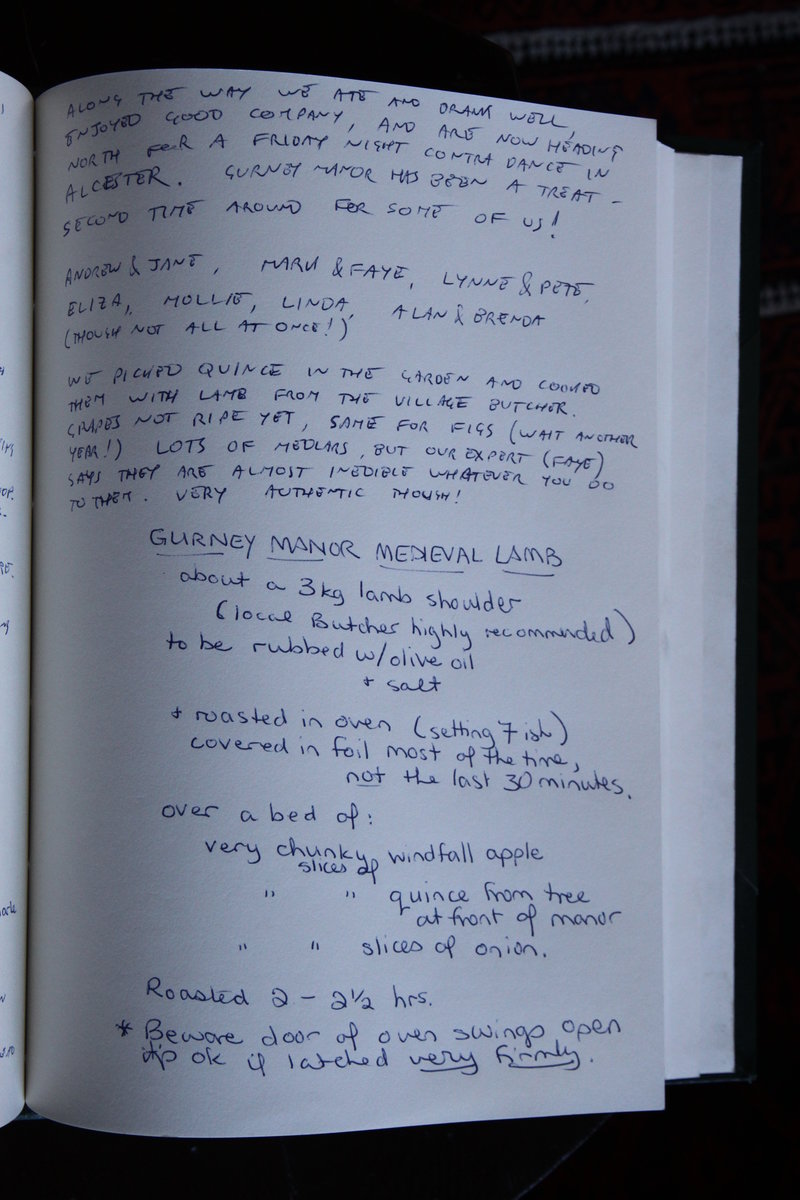 ALONG THE WAY WE ATE AND DRANK WELL,
ENJOYED GOOD COMPANY, AND ARE NOW HEADING
NORTH FOR A FRIDAY NIGHT CONTRA DANCE IN
ALCESTER. GURNEY MANOR HAS BEEN A TREAT -
SECOND TIME AROUND FOR SOME OF US!
ANDREW & JANE, MARK & FAYE, LYNNE & PETE,
ELIZA, MOLLIE, LINDA, ALAN & BRENDA
(THOUGH NOT ALL AT ONCE!)
WE PICKED QUINCE IN THE GARDEN AND COOKED
THEM WITH LAMB FROM THE VILLAGE BUTCHER.
GRAPES NOT RIPE YET, SAME FOR FIGS (WAIT ANOTHER
YEAR!) LOTS OF MEDLARS, BUT OUR EXPERT (FAYE)
SAYS THEY ARE ALMOST INEDIBLE WHATEVER YOU DO
TO THEM. VERY AUTHENTIC THOUGH!
GURNEY MANOR MEDIEVAL LAMB
about a 3kg lamb shoulder
(local Butcher highly recommended)
to be rubbed w/olive oil
+ salt
+ roasted in oven (setting 7 ish)
covered in foil most of the time,
not the last 30 minutes.
over a bed of:
very chunky slices of windfall apple
" " quince from tree
at front of manor
" " slices of onion.
Roasted 2 - 2½ hrs.
* Beware door of oven swings open
ok if latched very firmly.